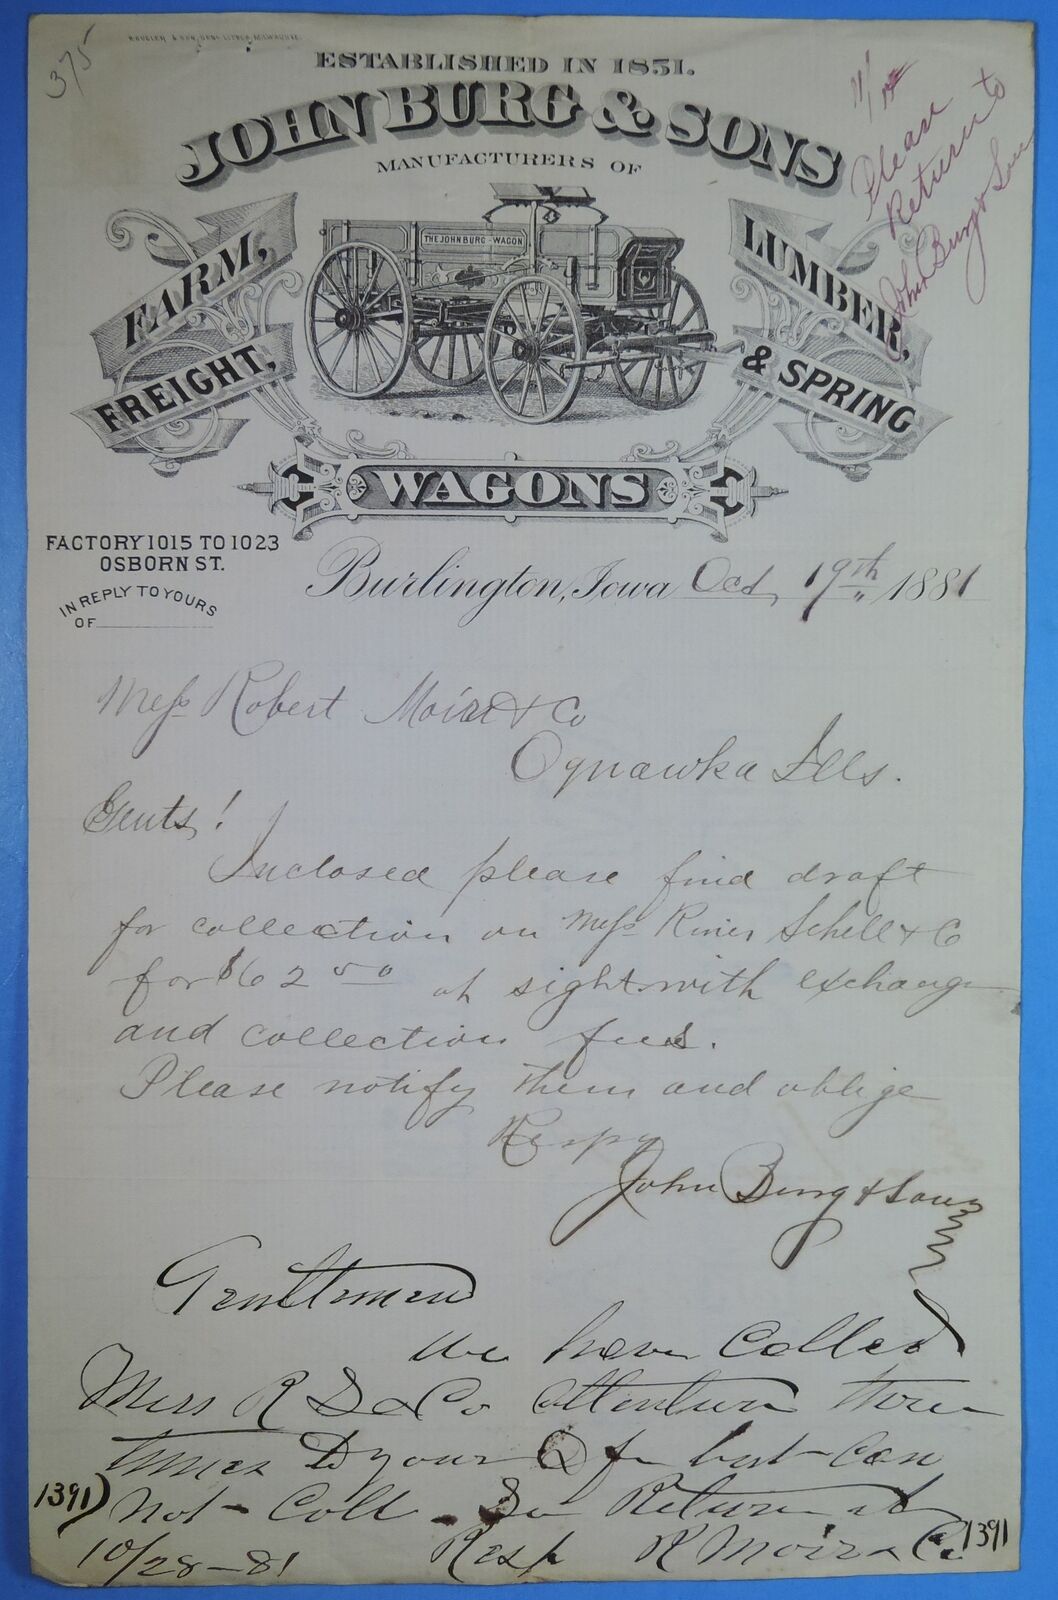 375
ESTABLISHED IN 1851.
JOHN BURG & SONS
MANUFACTURERS OF
FARM,
FREIGHT,
LUMBER,
& SPRING
THE JOHN BURG - WAGON
WAGONS
Please
Return to
John Burg & Son
FACTORY 1015 TO 1023
OSBORN ST.
IN REPLY TO YOURS
OF
Burlington, Iowa Oct 19th 1881
Mess Robert Moir & Co
Oquawka Ills.
Gents!
Inclosed please find draft
for collection on Mess Riner Schell & Co
for $62 50 at sight with exchange
and collection fees.
Please notify them and oblige
Respy
John Burg & Sons
Gentlemen
We have Called
Mess R S & Co attention three
times to your D for but Can
not Coll. So Return it
10/28-81 Resp R Moir & Co
1391) 1391